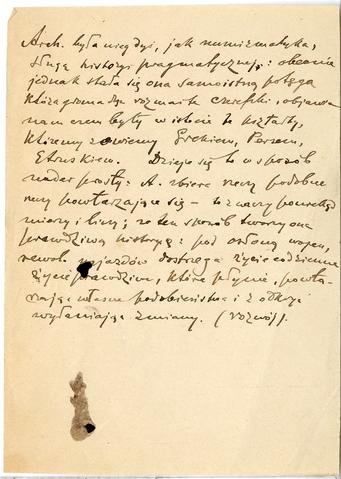 Arch. była niegdyś, jak numizmatyka,
sługą historji pragmatycznej: obecnie
jednak stała się ona samoistną potęgą
która gromadząc rozmaite czerepki, objawia
nam czem były w istocie te kształty,
które my zowiemy Grekiem, Persem,
Etruskiem. Dzieje się to w sposób
nader prosty: A. zbiera rzeczy podobne
rzeczy powtarzające się – to znaczy pomiędzy
miary i liczy; w ten sposób tworzy ona
prawdziwą historję: pod osłoną wojen,
rewol. najazdów dostrzega życie codzienne
życie prawdziwe, które płynie, powta-
rzając własne podobieństwa i z
wyłaniając zmiany. (rozwój).